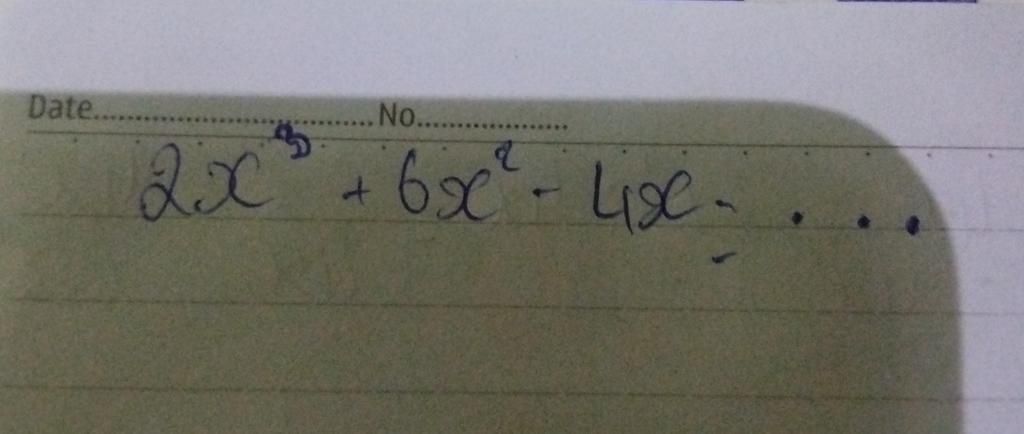 Date..............................No..................
2x³ + 6x² - 4x = . . .